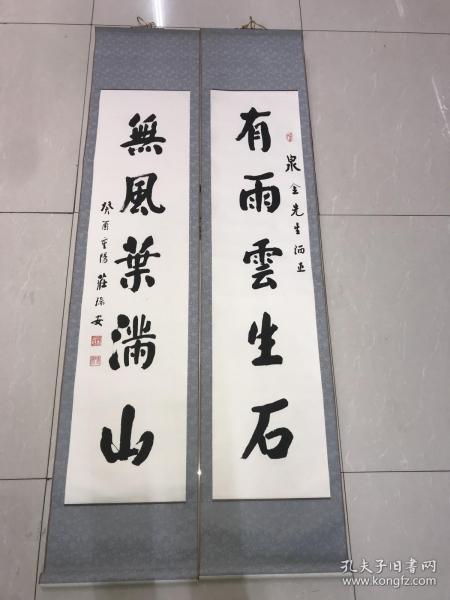 有雨雲生石
泉金先生洒正
無風葉滿山
癸酉重陽
莊
安
孔夫子旧书网
www.kongfz.com